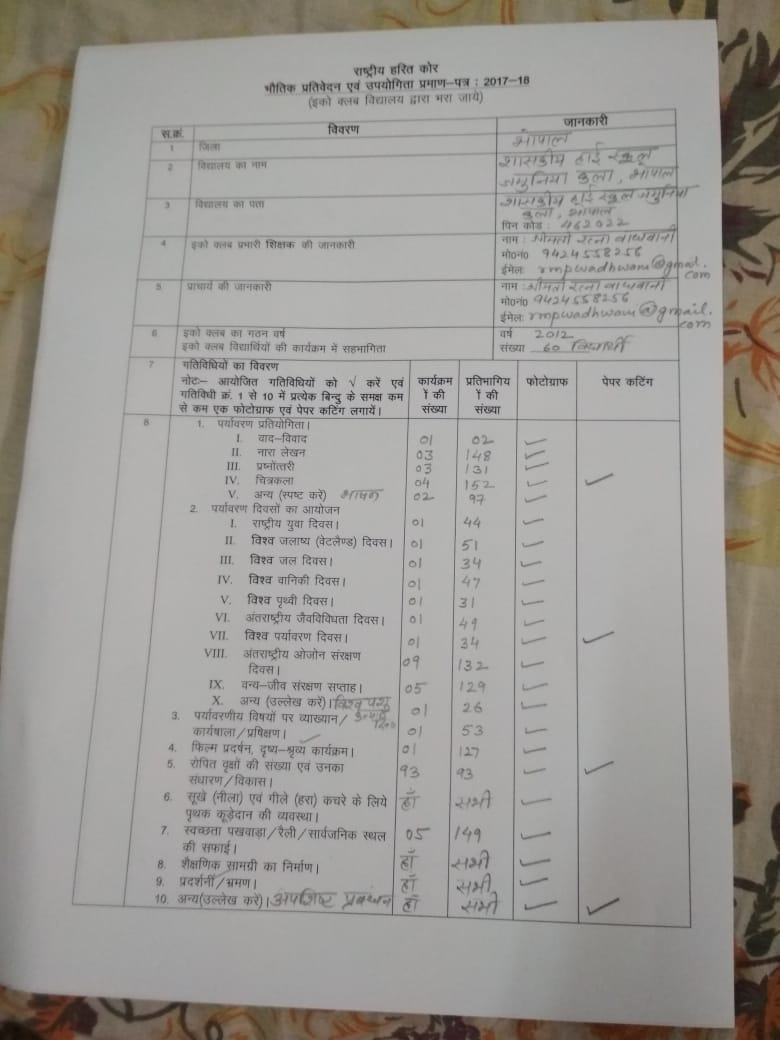 राष्ट्रीय हरित कोर
भौतिक प्रतिवेदन एवं उपयोगिता प्रमाण–पत्र : 2017–18
(इको क्लब विद्यालय द्वारा भरा जाये)
स.क्रं. विवरण जानकारी
1 जिला भोपाल
2 विद्यालय का नाम शासकीय हाई स्कूल
जमुनिया कला, भोपाल
3 विद्यालय का पता शासकीय हाई स्कूल जमुनिया
कला, भोपाल
पिन कोड : 462022
4 इको क्लब प्रभारी शिक्षक की जानकारी नाम : श्रीमती रत्ना वाधवानी
मो0नं0 9424558256
ईमेलः rmpwadhwani@gmail.
com
5 प्राचार्य की जानकारी नाम : श्रीमती रत्ना वाधवानी
मो0नं0 9424558256
ईमेलः rmpwadhwani@gmail.
com
6 इको क्लब का गठन वर्ष वर्ष 2012
इको क्लब विद्यार्थियों की कार्यक्रम में सहभागिता संख्या 60 विद्यार्थी
7 गतिविधियों का विवरण
नोटः– आयोजित गतिविधियों को √ करें एवं कार्यक्रम प्रतिभागिय फोटोग्राफ पेपर कटिंग
गतिविधी क्रं. 1 से 10 में प्रत्येक बिन्दु के समक्ष कम ों की ों की
से कम एक फोटोग्राफ एवं पेपर कटिंग लगायें। संख्या संख्या
8 1. पर्यावरण प्रतियोगिता।
I. वाद–विवाद 01 02 ✓
II. नारा लेखन 03 148 ✓
III. प्रश्नोंत्तरी 03 131 ✓
IV. चित्रकला 04 152 ✓ ✓
V. अन्य (स्पष्ट करें) भाषन 02 97 ✓
2. पर्यावरण दिवसों का आयोजन
I. राष्ट्रीय युवा दिवस। 01 44 ✓
II. विश्व जलाष्य (वेटलैण्ड) दिवस। 01 51 ✓
III. विश्व जल दिवस। 01 34 ✓
IV. विश्व वानिकी दिवस। 01 47 ✓
V. विश्व पृथ्वी दिवस। 01 31 ✓
VI. अंतराष्ट्रीय जैवविविधता दिवस। 01 49 ✓
VII. विश्व पर्यावरण दिवस। 01 34 ✓ ✓
VIII. अंतराष्ट्रीय ओजोन संरक्षण 09 132 ✓
दिवस।
IX. वन्य–जीव संरक्षण सप्ताह। 05 129 ✓
X. अन्य (उल्लेख करें)। विश्व पशु 01 26 ✓
3. पर्यावरणीय विषयों पर व्याख्यान/
कार्यषाला/प्रषिक्षण। 01 53 ✓
4. फिल्म प्रदर्षन, दृष्य–श्रृव्य कार्यक्रम। 01 127 ✓
5. रोपित वृक्षों की संख्या एवं उनका 93 93 ✓ ✓
संधारण/विकास।
6. सूखे (नीला) एवं गीले (हरा) कचरे के लिये हाँ सभी ✓
पृथक कूड़ेदान की व्यवस्था।
7. स्वच्छता पखवाड़ा/रैली/सार्वजनिक स्थल 05 149 ✓
की सफाई।
8. शैक्षणिक सामग्री का निर्माण। हाँ सभी ✓
9. प्रदर्शनी/भ्रमण। हाँ सभी ✓
10. अन्य(उल्लेख करें)। अपशिष्ट प्रबंधन हाँ सभी ✓ ✓